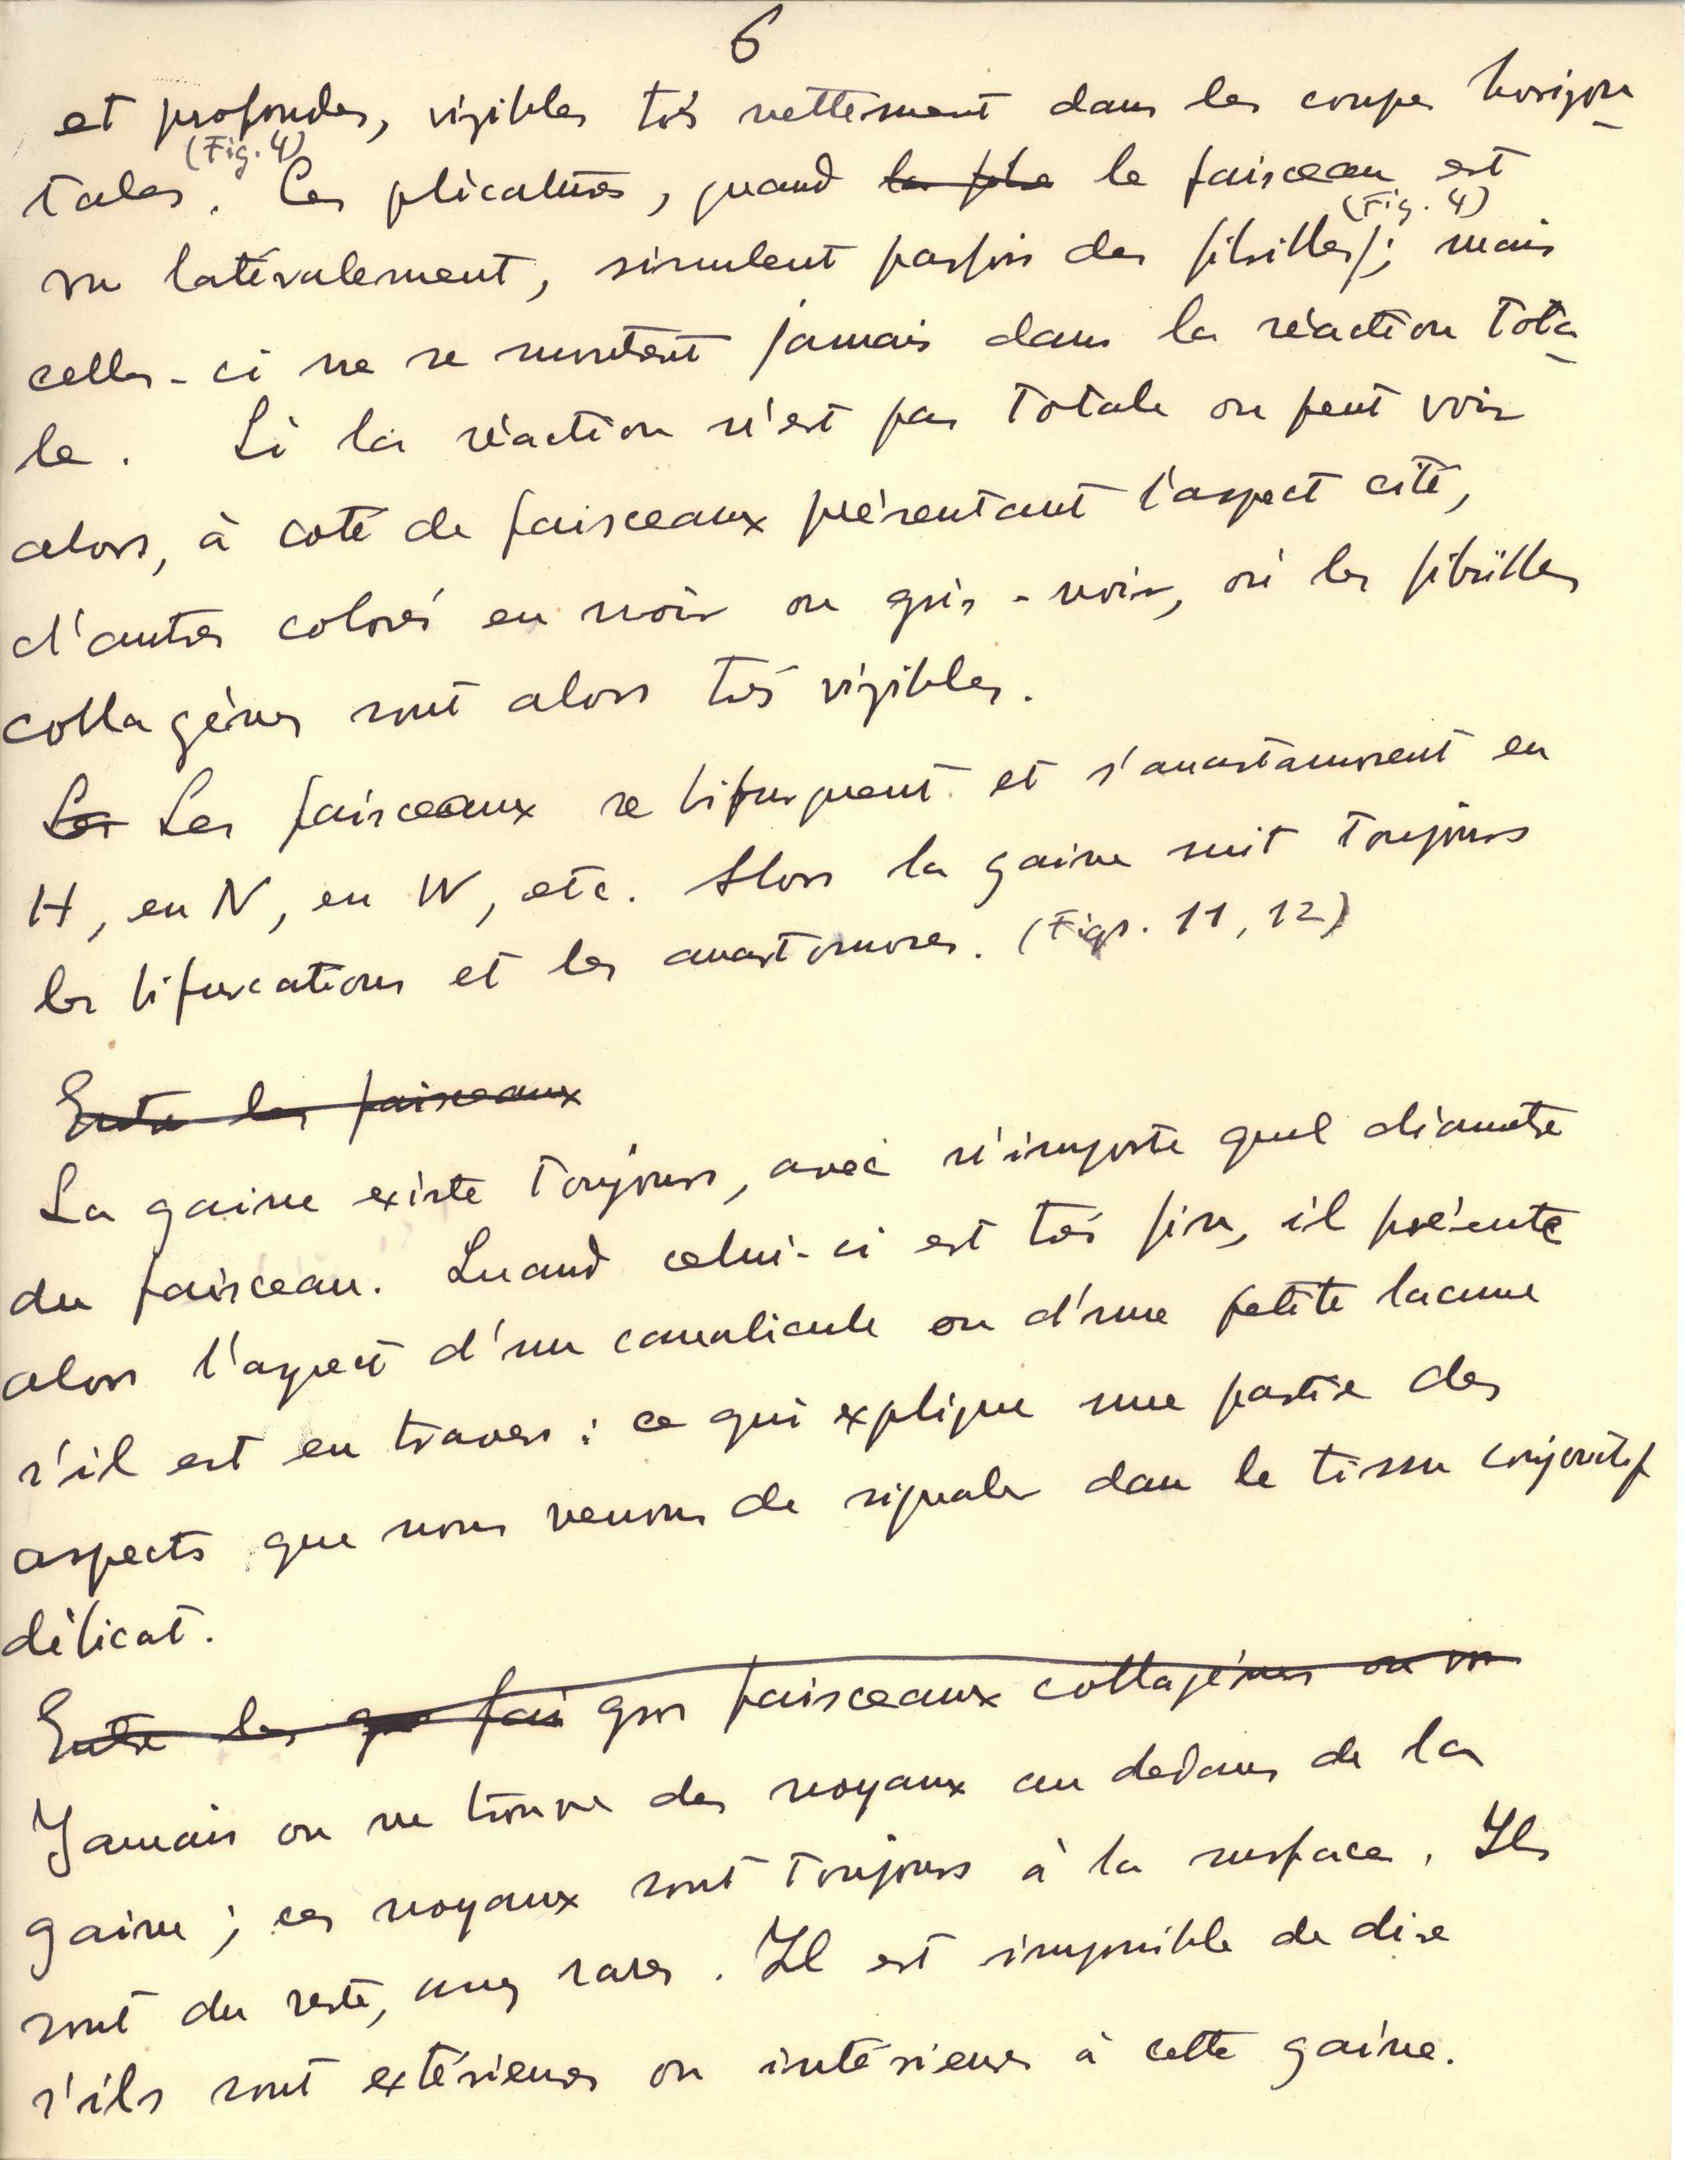 6
et profondes, vizibles très nettement dans les coupes horizon
(Fig. 4)
tales. Ces plicatures, quand la plu le faisceau est
(Fig. 4)
vu latéralement, simulent parfois des fibrilles; mais
celles-ci ne se montrent jamais dans la réaction tota
le. Si la réaction n'est pas totale on peut voir
alors, à coté de faisceaux présentant l'aspect cité,
d'autres colorés en noir ou gris-noir, où les fibrilles
collagènes sont alors très vizibles.
Les Les faisceaux se bifurquent et s'anastamosent en
H, en N, en W, etc. Alors la gaine suit toujours
les bifurcations et les anastomoses. (Figs. 11, 12)
Entre les faisceaux
La gaine existe toujours, avec n'importe quel diametre
du faisceau. Quand celui-ci est très fin, il présente
alors l'aspect d'un canalicule ou d'une petite lacune
s'il est en travers: ce qui explique une partie des
aspects que nous venons de signaler dan le tissu conjonctif
délicat.
Entre les gro fai gros faisceaux collagènes on vo
Jamais on ne trouve des noyaux au dedans de la
gaine; ces noyaux sont toujours à la surface. Ils
sont du reste, assez rares. Il est impossible de dire
s'ils sont extérieurs ou intérieurs à cette gaine.